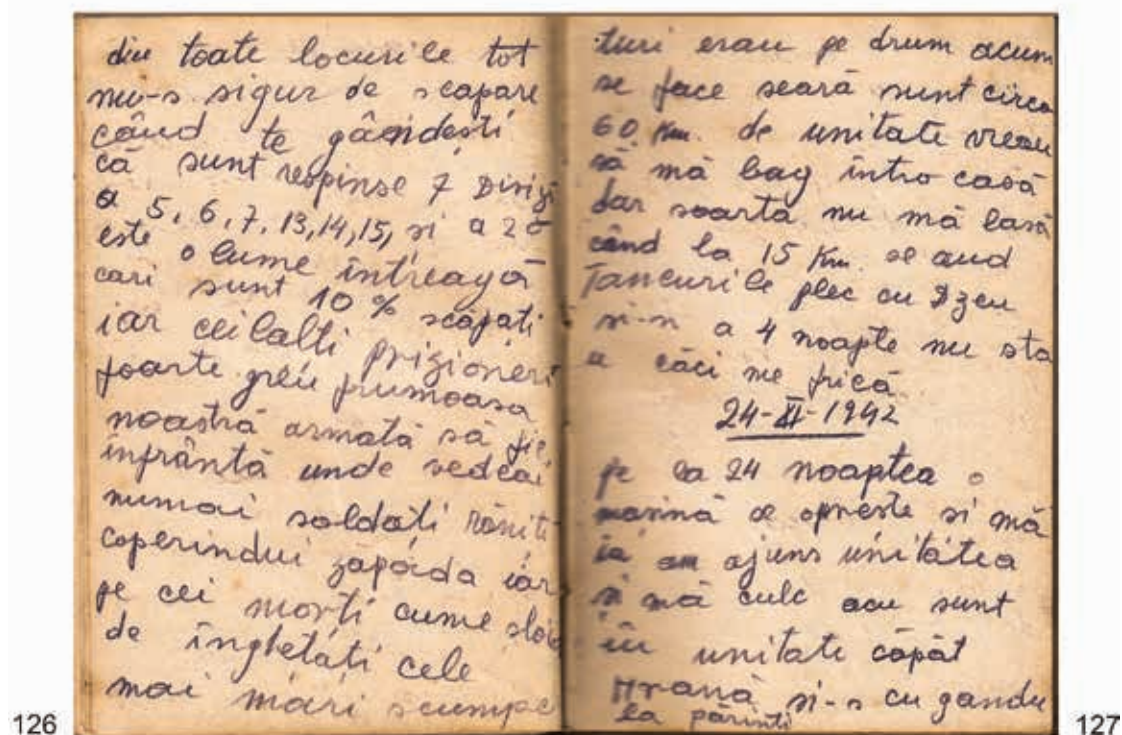 din toate locurile tot
nu-s sigur de scapare
când te gândești
că sunt respinse 7 Divizi
a 5, 6, 7, 13, 14, 15, si a 20
este o lume întreagă
cari sunt 10 % scăpati
iar ceilalti prizioneri
foarte greu frumoasa
noastră armată să fie
înfrântă unde vedeai
numai soldati răniti
coperindui zapada iar
pe cei morti cume sloi
de înghetati cele
mai mari scumpe
126
turi erau pe drum acum
se face seară sunt circa
60 Km. de unitate vreau
să mă bag intro casă
dar soarta nu mă lasă
când la 15 Km. se aud
Tancurile plec cu Dzeu
si-n a 4 noapte nu sta
u căci me frică
24-XI-1942
pe la 24 noaptea o
masină se opreste si mă
ia am ajuns unitatea
si mă culc acu sunt
în unitate capăt
Hrană si-s cu gandu
la părinti
127